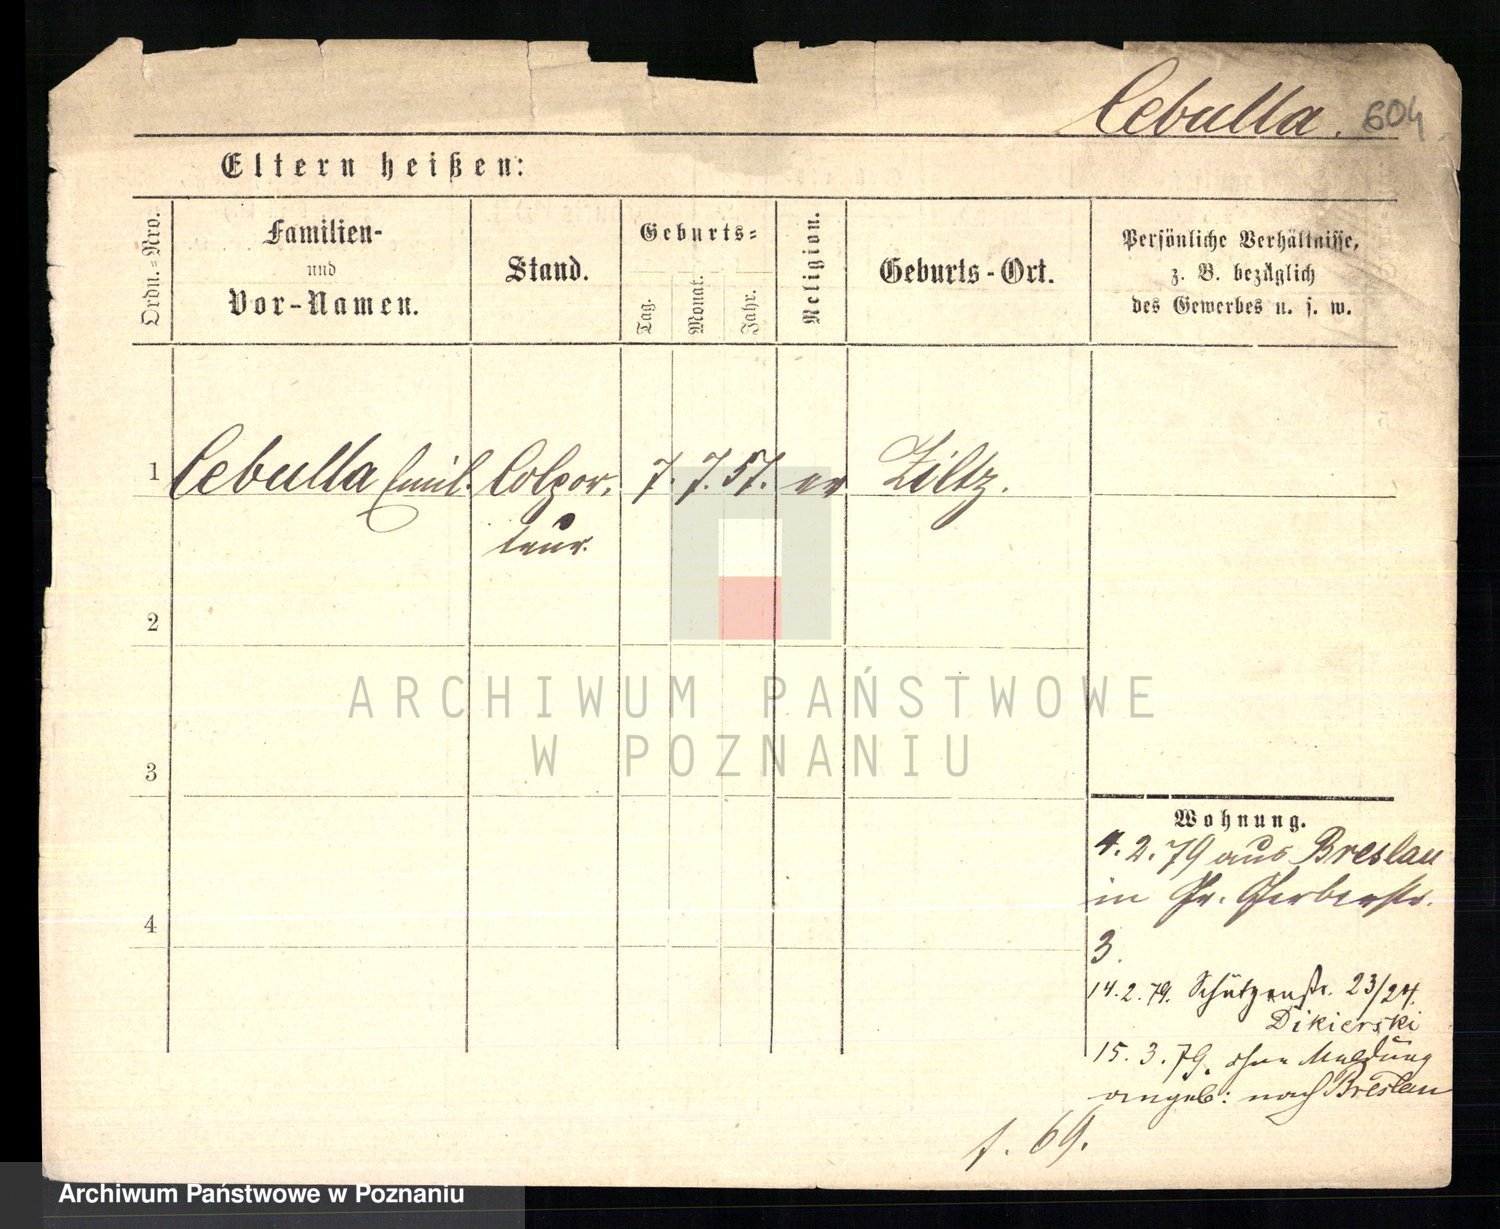 Cebulla. 604
Eltern heißen:
Ordn.-Nro.
Familien-
und
Vor-Namen.
Stand.
Geburts-
Tag.
Monat.
Jahr.
Religion.
Geburts-Ort.
Persönliche Verhältnisse,
z. B. bezüglich
des Gewerbes u. s. w.
1 Cebulla Emil. Colpor- 7. 7. 57. ev Ziltz.
teur.
2
3
4
Wohnung.
4. 2. 79 aus Breslau
in Gr. Gerberstr.
3.
14. 2. 79. Schützenstr. 23/24.
Dikierski
15. 3. 79. ohne Meldung
angeb: nach Breslau
f. 69.
ARCHIWUM PAŃSTWOWE
W POZNANIU
Archiwum Państwowe w Poznaniu